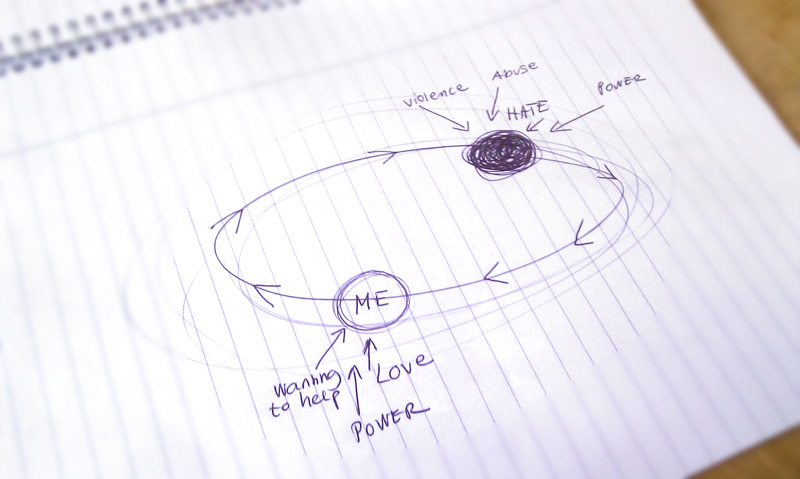 violence
Abuse
HATE
POWER
ME
Wanting
to help
LOVE
POWER